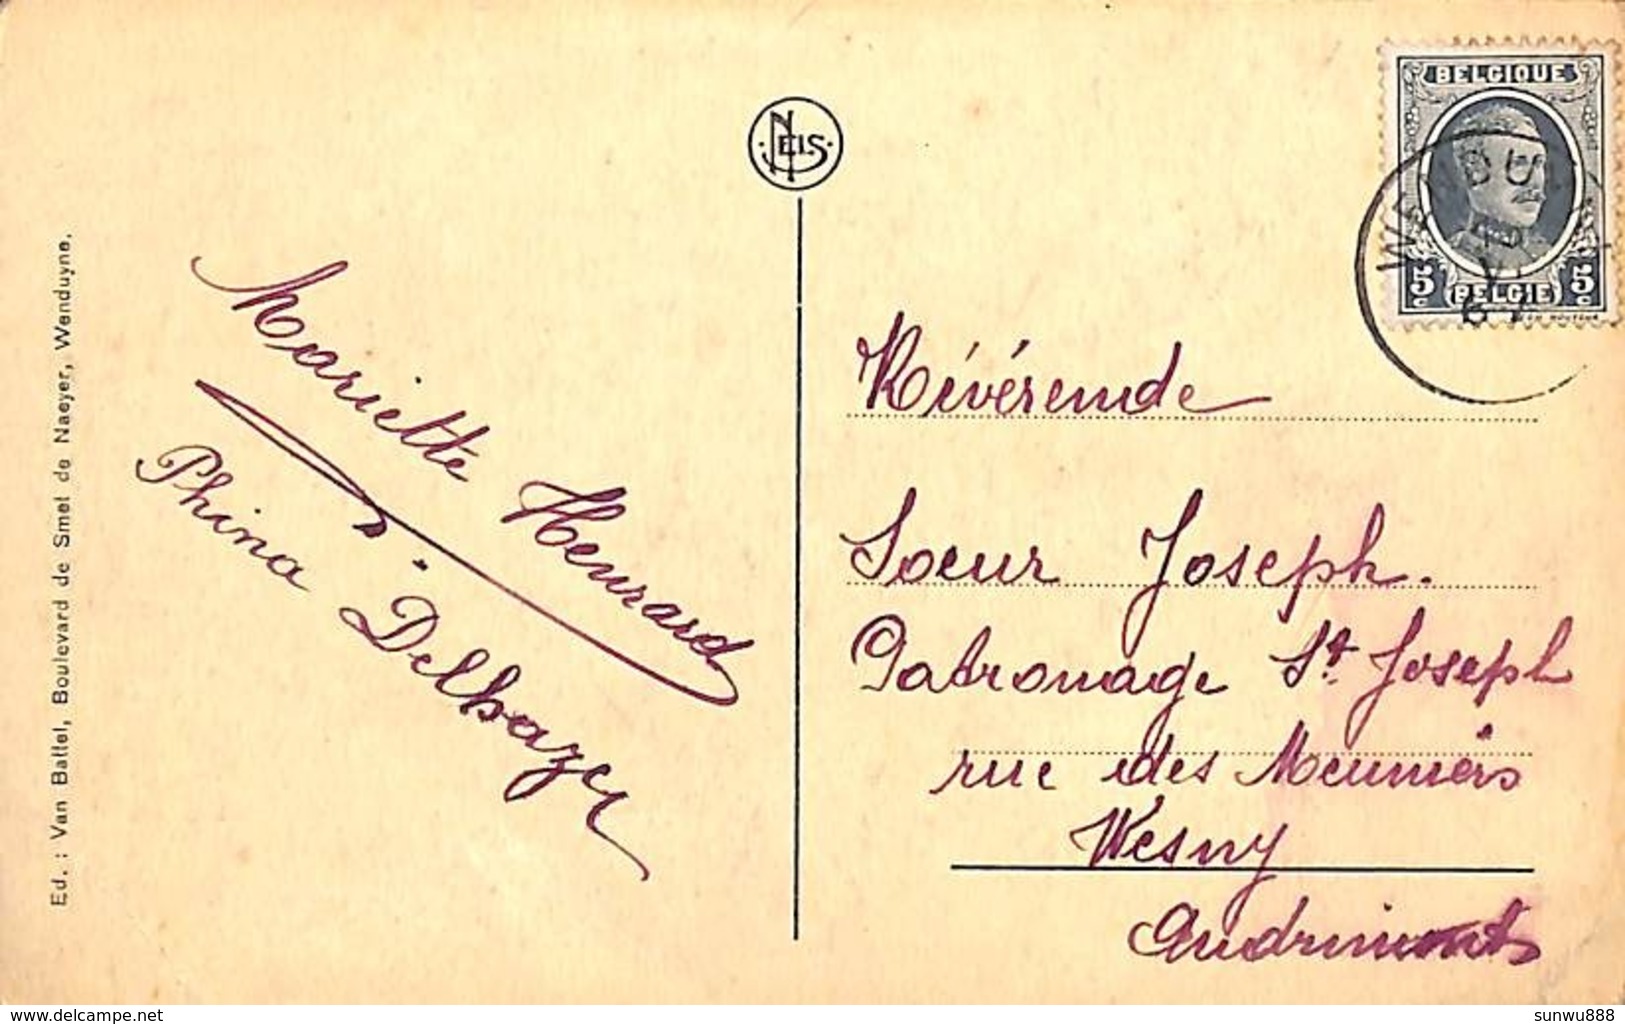 Ed. : Van Battel, Boulevard de Smet de Naeyer, Wenduyne.
NELS
BELGIQUE
5c BELGIE 5c
Mariette Heurard
Phina Delhazer
Révérende
Soeur Joseph.
Patronage St Joseph
rue des Meuniers
Wesny
Andrimont
delcampe.net
sunwu888